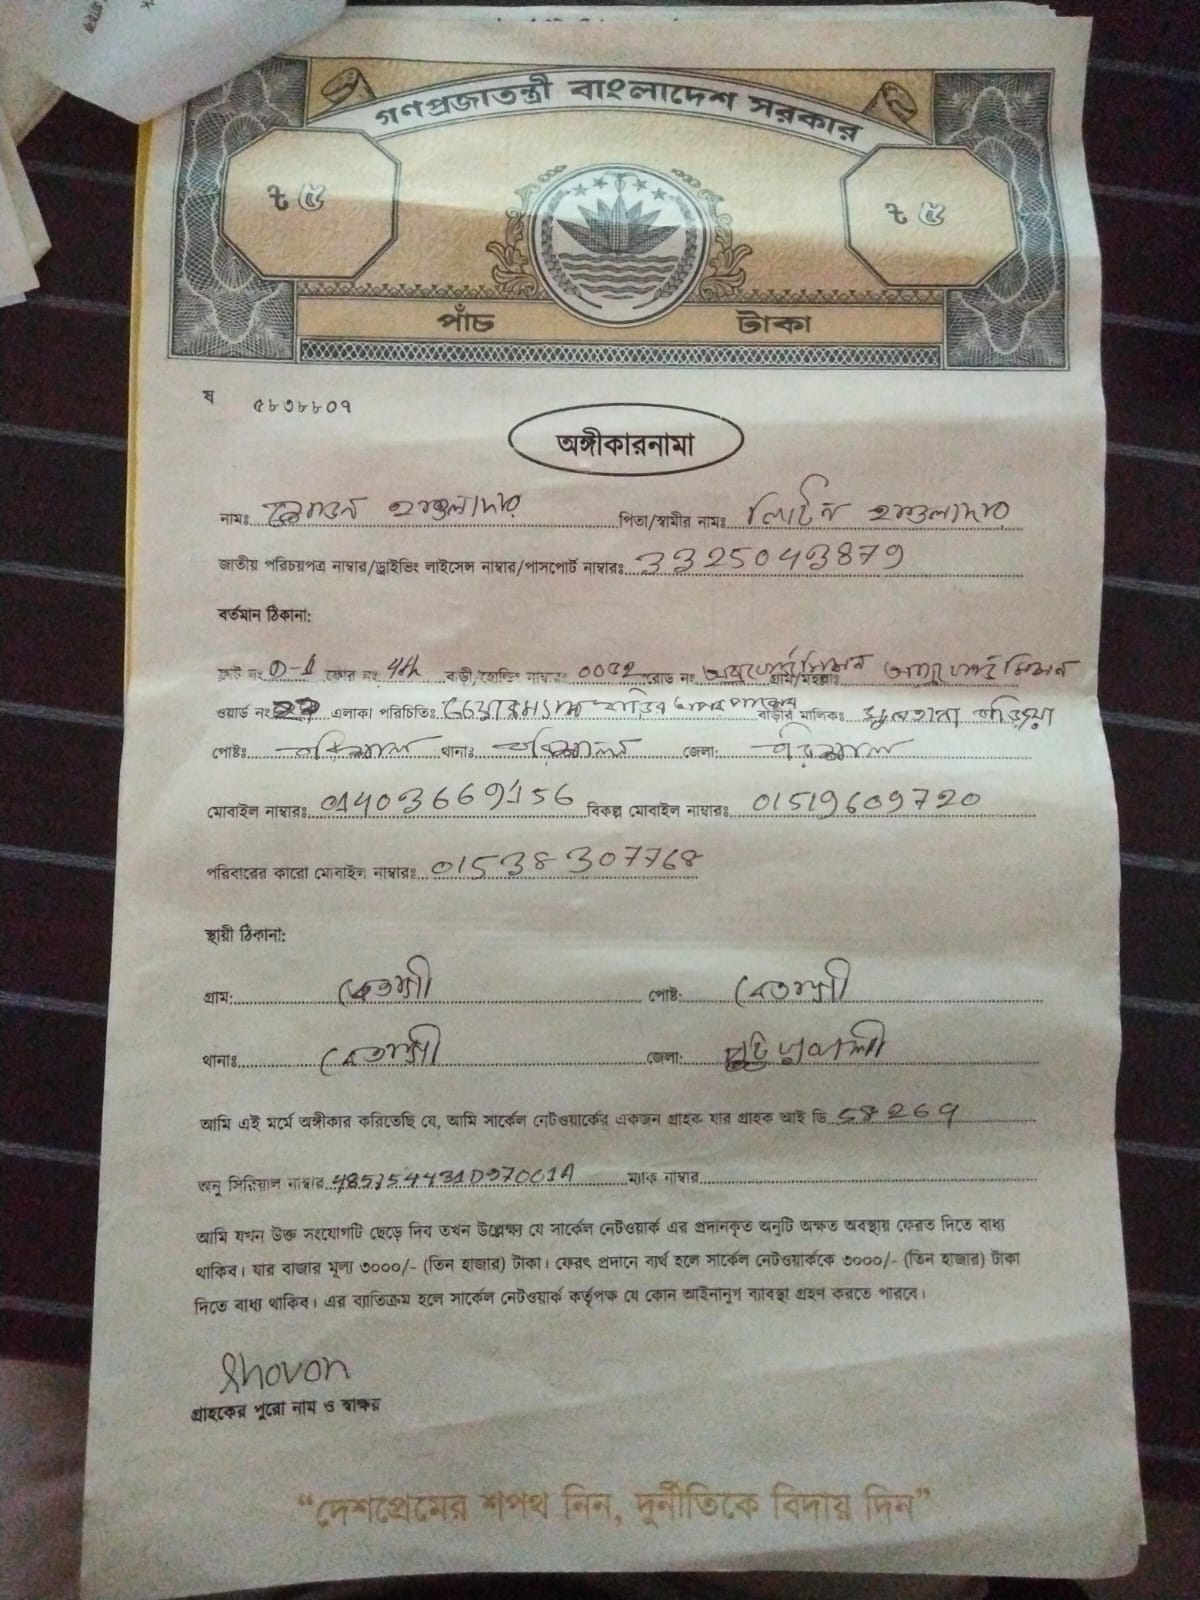 গণপ্রজাতন্ত্রী বাংলাদেশ সরকার
৳ ৫ ৳ ৫
পাঁচ টাকা
ষ ৫৮৩৮৮০৭
অঙ্গীকারনামা
নামঃ হাওলাদার পিতা/স্বামীর নামঃ লিটন হাওলাদার
জাতীয় পরিচয়পত্র নাম্বার/ড্রাইভিং লাইসেন্স নাম্বার/পাসপোর্ট নাম্বারঃ 3325043879
বর্তমান ঠিকানা:
ফ্লাট নং ফ্লোর নং 4th বাড়ী/হোল্ডিং নাম্বারঃ রোড নং গ্রাম/মহল্লাঃ
ওয়ার্ড নং এলাকা পরিচিতিঃ বাড়ীর মালিকঃ
পোষ্টঃ বরিশাল থানাঃ বরিশাল জেলা: বরিশাল
মোবাইল নাম্বারঃ 01403669156 বিকল্প মোবাইল নাম্বারঃ 01519609720
পরিবারের কারো মোবাইল নাম্বারঃ 01538307768
স্থায়ী ঠিকানা:
গ্রাম: বেতাগী পোষ্ট: বেতাগী
থানাঃ বেতাগী জেলা: পটুয়াখালী
আমি এই মর্মে অঙ্গীকার করিতেছি যে, আমি সার্কেল নেটওয়ার্কের একজন গ্রাহক যার গ্রাহক আই ডি
অনু সিরিয়াল নাম্বার ম্যাক নাম্বার
আমি যখন উক্ত সংযোগটি ছেড়ে দিব তখন উল্লেক্ষ্য যে সার্কেল নেটওয়ার্ক এর প্রদানকৃত অনুটি অক্ষত অবস্থায় ফেরত দিতে বাধ্য
থাকিব। যার বাজার মূল্য ৩০০০/- (তিন হাজার) টাকা। ফেরৎ প্রদানে ব্যর্থ হলে সার্কেল নেটওয়ার্ককে ৩০০০/- (তিন হাজার) টাকা
দিতে বাধ্য থাকিব। এর ব্যাতিক্রম হলে সার্কেল নেটওয়ার্ক কর্তৃপক্ষ যে কোন আইনানুগ ব্যাবস্থা গ্রহণ করতে পারবে।
Shovon
গ্রাহকের পুরো নাম ও স্বাক্ষর
“দেশপ্রেমের শপথ নিন, দুর্নীতিকে বিদায় দিন”